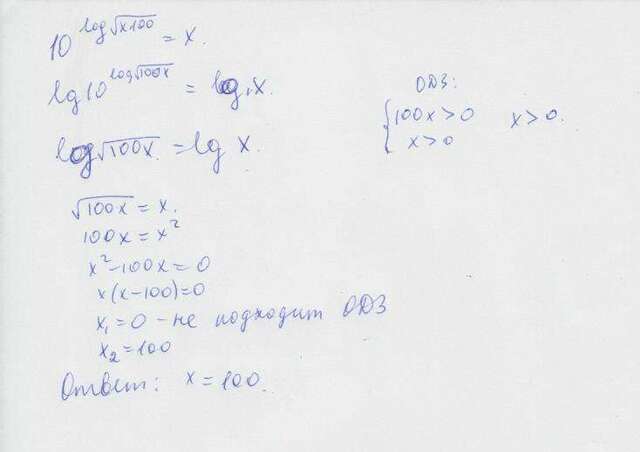 10^log√x100 = x.
lg10^log√100x = lg x.
log√100x = lg x.
ОДЗ:
{100x>0 x>0.
x>0
√100x = x.
100x = x²
x²-100x=0
x(x-100)=0
x₁=0 - не подходит ОДЗ
x₂=100
Ответ: x=100.